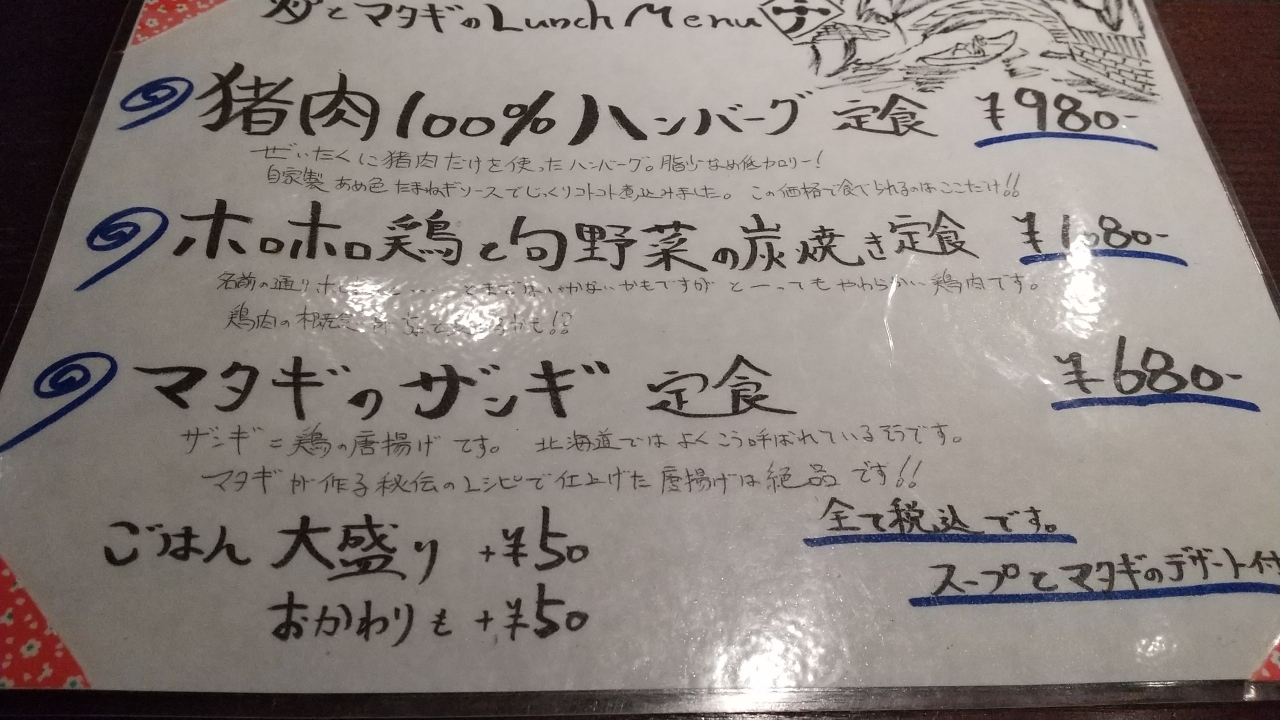 とマタギのLunch Menu
猪肉100%ハンバーグ 定食 ¥980-
ぜいたくに猪肉だけを使ったハンバーグ。脂少なめ低カロリー!
自家製 あめ色 たまねぎソースでじっくりコトコト煮込みました。この価格で食べられるのはここだけ!!
ホロホロ鶏と旬野菜の炭焼き定食 ¥1680-
名前の通りホ とまではいかないかもですが とーってもやわらかい鶏肉です。
鶏肉の概念 かも!?
マタギのザンギ 定食 ¥680-
ザンギ=鶏の唐揚げです。 北海道ではよくこう呼ばれているそうです。
マタギが作る秘伝のレシピで仕上げた唐揚げは絶品です!!
ごはん 大盛り +¥50
おかわりも +¥50
全て税込です。
スープとマタギのデザート付